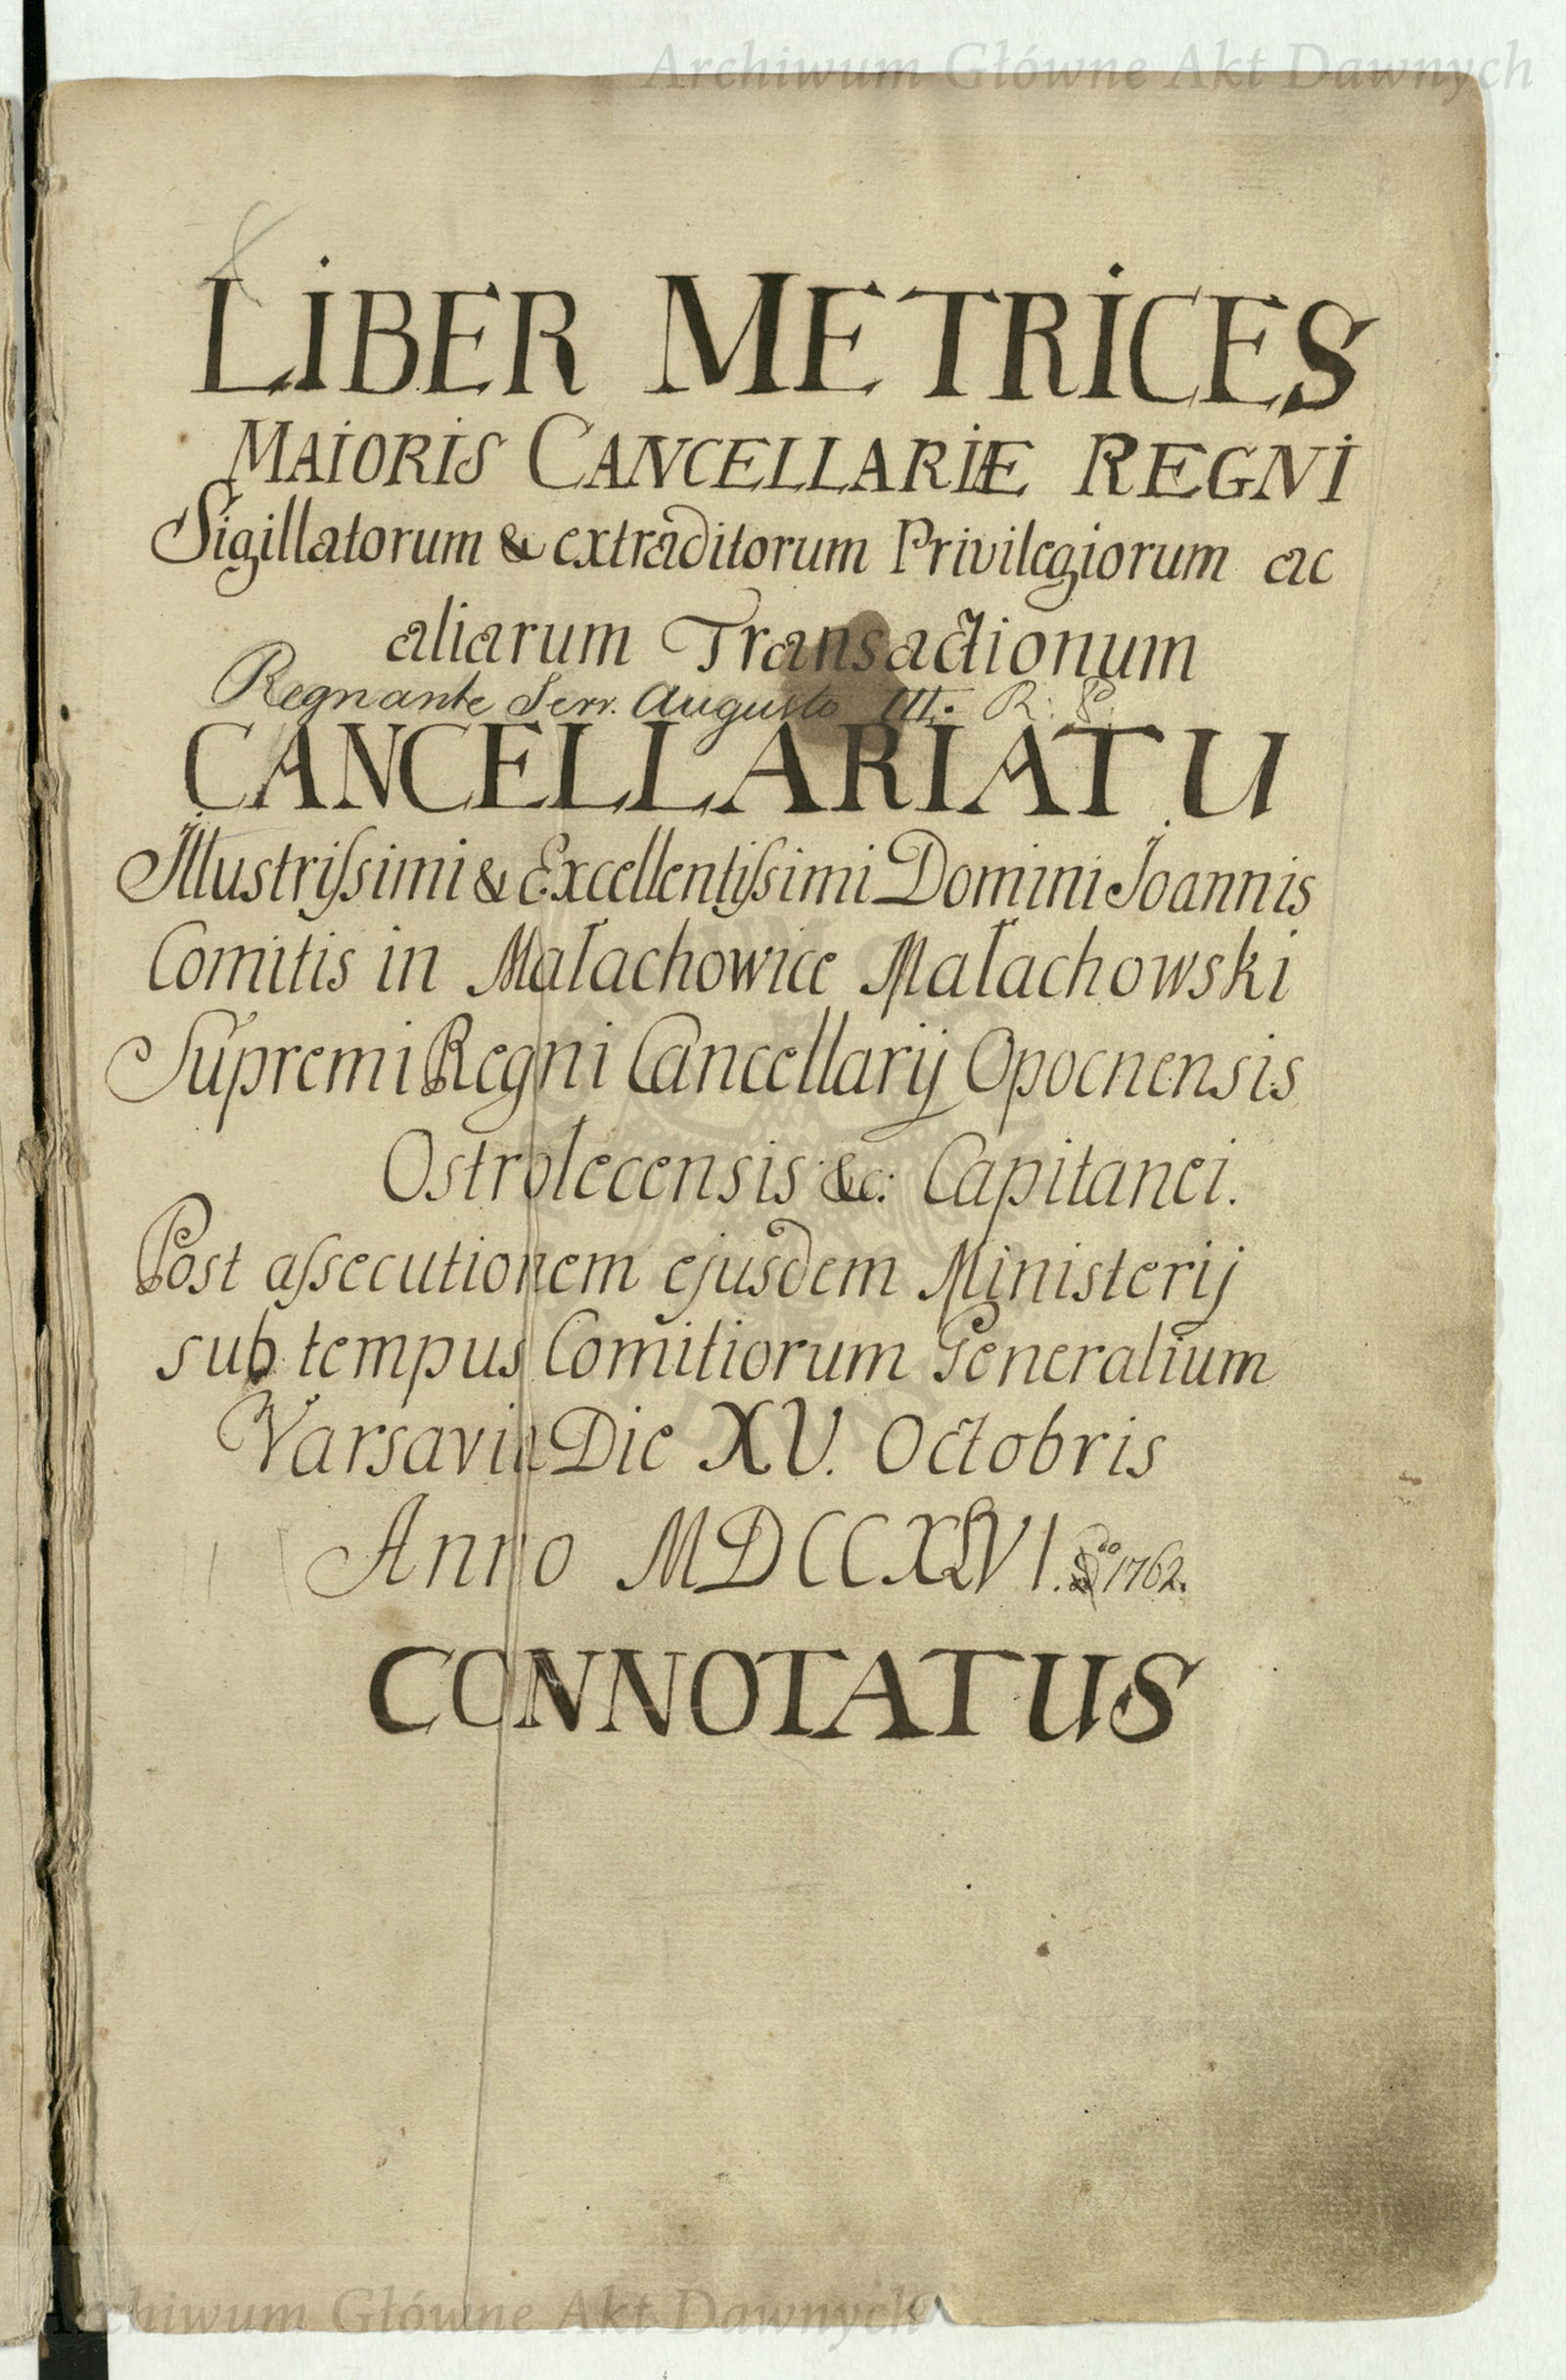 Archiwum Główne Akt Dawnych
LIBER METRICES
MAIORIS CANCELLARIÆ REGNI
Sigillatorum & extraditorum Privilegiorum ac
aliarum Transactionum
Regnante Serr. Augusto III. R. P.
CANCELLARIATU
Illustrissimi & Excellentissimi Domini Joannis
Comitis in Małachowice Małachowski
Supremi Regni Cancellarij Opocnensis
Ostrołecensis &c: Capitanei.
Post assecutionem ejusdem Ministerij
sub tempus Comitiorum Generalium
Varsaviæ Die XV. Octobris
Anno MDCCXLVI. 1762.
CONNOTATUS
Archiwum Główne Akt Dawnych